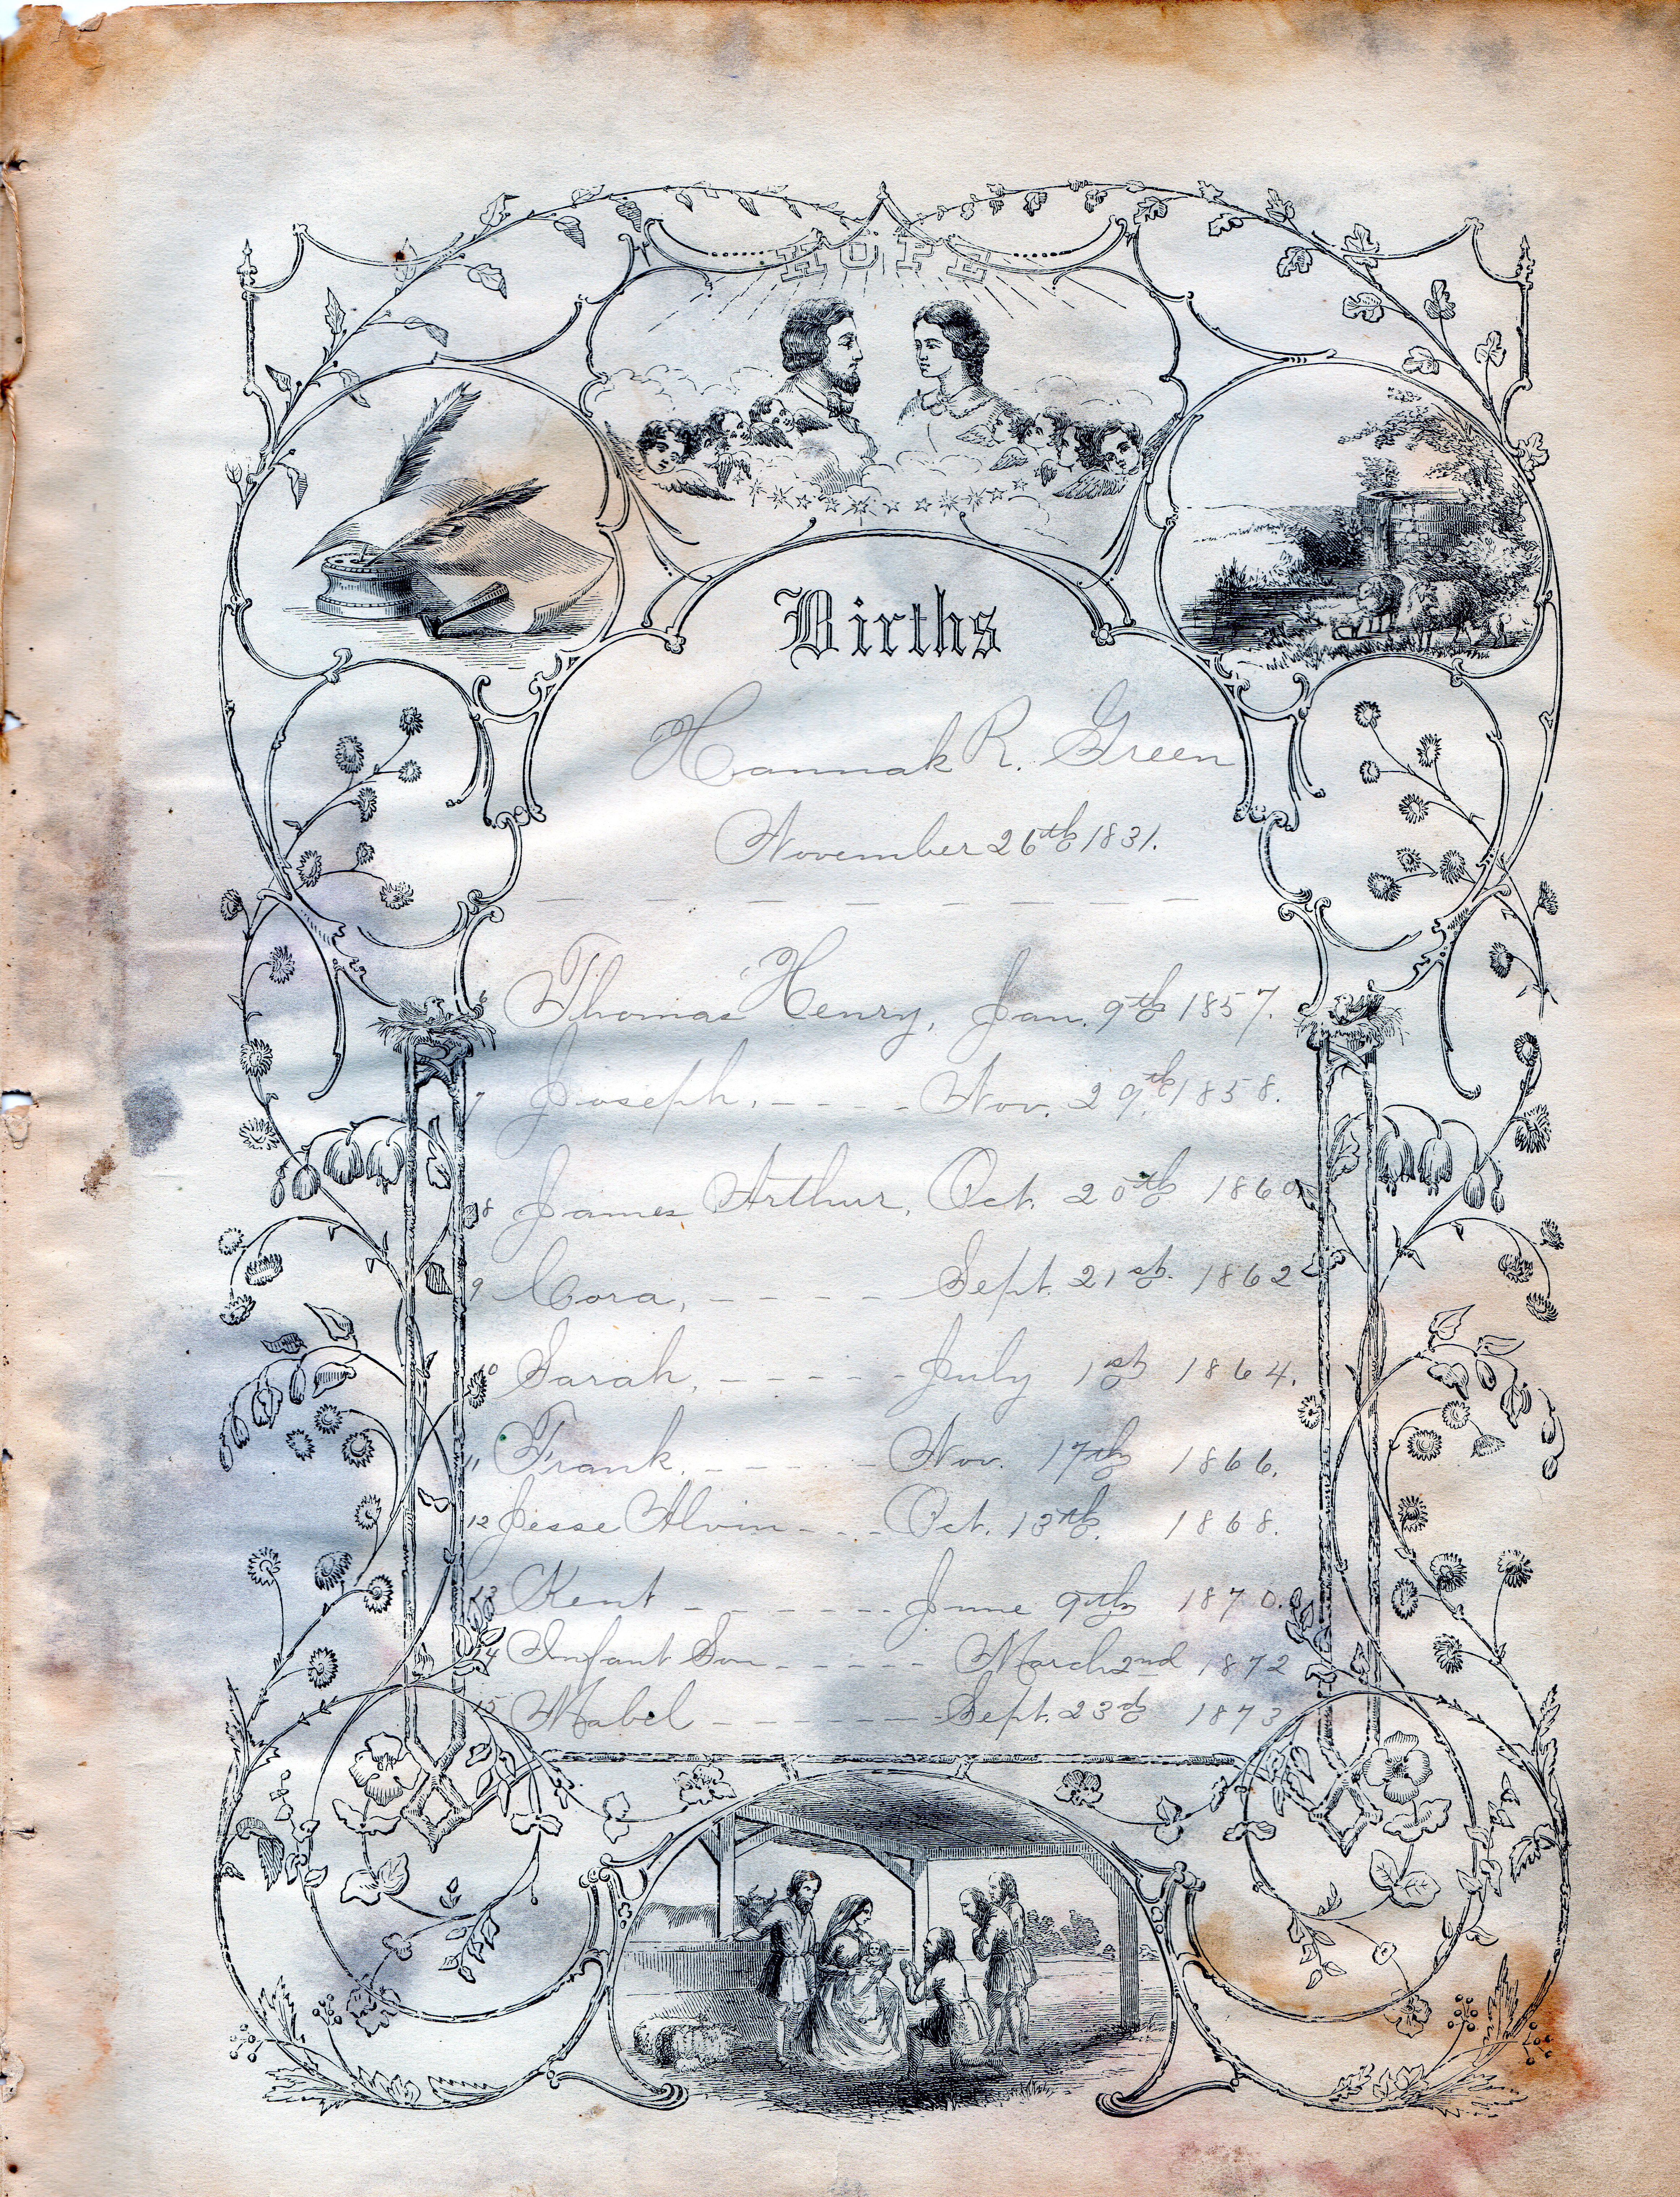 HOPE
Births
Hannah R. Green
November 26th 1831.
6 Thomas Henry, Jan. 9th 1857.
7 Joseph, - - - - Nov. 29th 1858.
8 James Arthur, Oct. 20th 1860
9 Cora, - - - - - Sept. 21st. 1862
10 Sarah, - - - - - July 1st 1864.
11 Frank, - - - - - Nov. 17th 1866.
12 Jesse Alvin - - - Oct. 13th. 1868.
13 Kent - - - - - - June 9th 1870.
14 Infant Son - - - - - March 2nd 1872
15 Mabel - - - - - - Sept. 23rd 1873